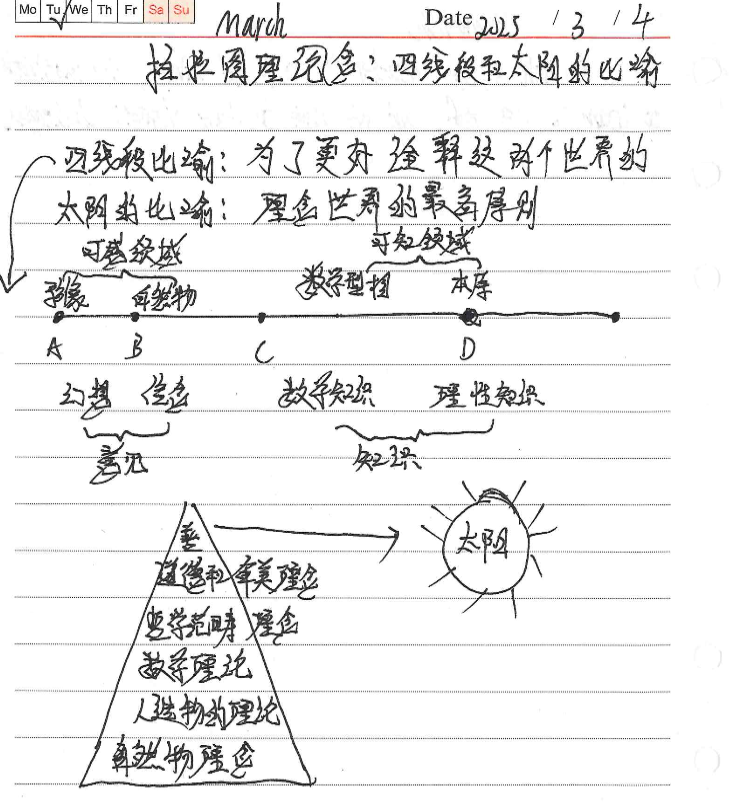 Mo Tu We Th Fr Sa Su
March Date 2025 / 3 / 4
柏拉图理论念：四线段和太阳的比喻
四线段比喻：为了更好诠释这两个世界的
太阳的比喻：理念世界的最高原则
可感领域 可知领域
影象 自然物 数学型相 本原
A B C D
幻想 信念 数学知识 理性知识
意见 知识
善 太阳
道德和审美理念
哲学范畴理念
数学理论
人造物的理论
自然物理念